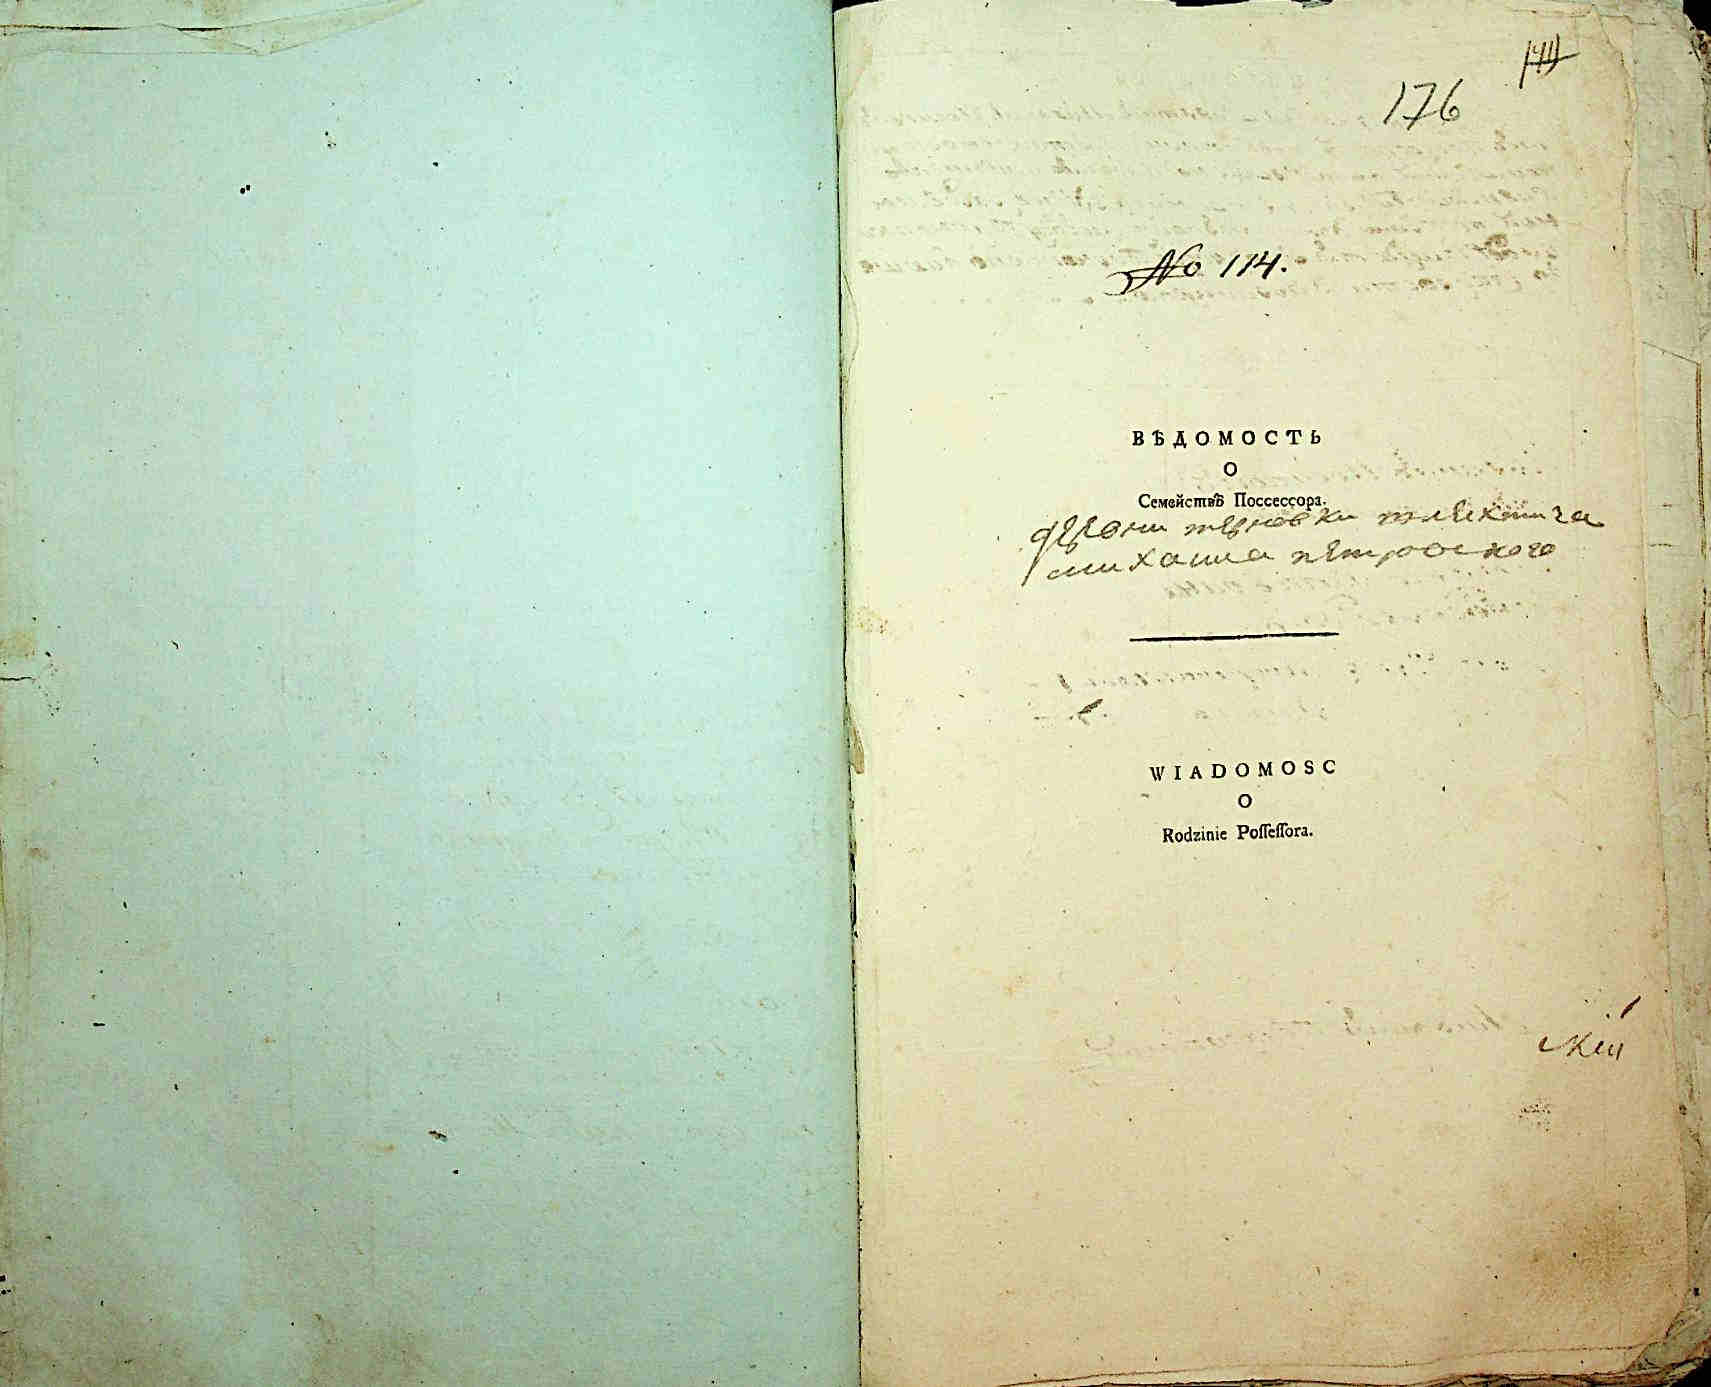 176
No 114.
ВѢДОМОСТЬ
О
Семействѣ Поссессора.
деревни терновки шляхтича
михаила петровского
WIADOMOSC
O
Rodzinie Poſſeſſora.